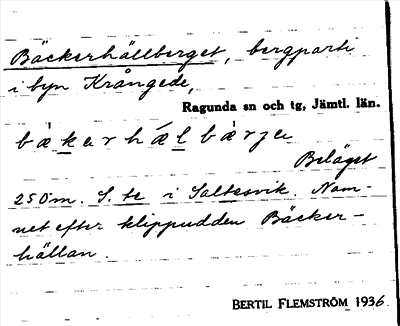 Bäckerhällberget, bergparti
i byn Krångede,
Ragunda sn och tg, Jämtl. län.
Beläget
250 m. S. te i Saltesvik. Nam-
net efter klippudden Bäcker-
hällan.
BERTIL FLEMSTRÖM 1936